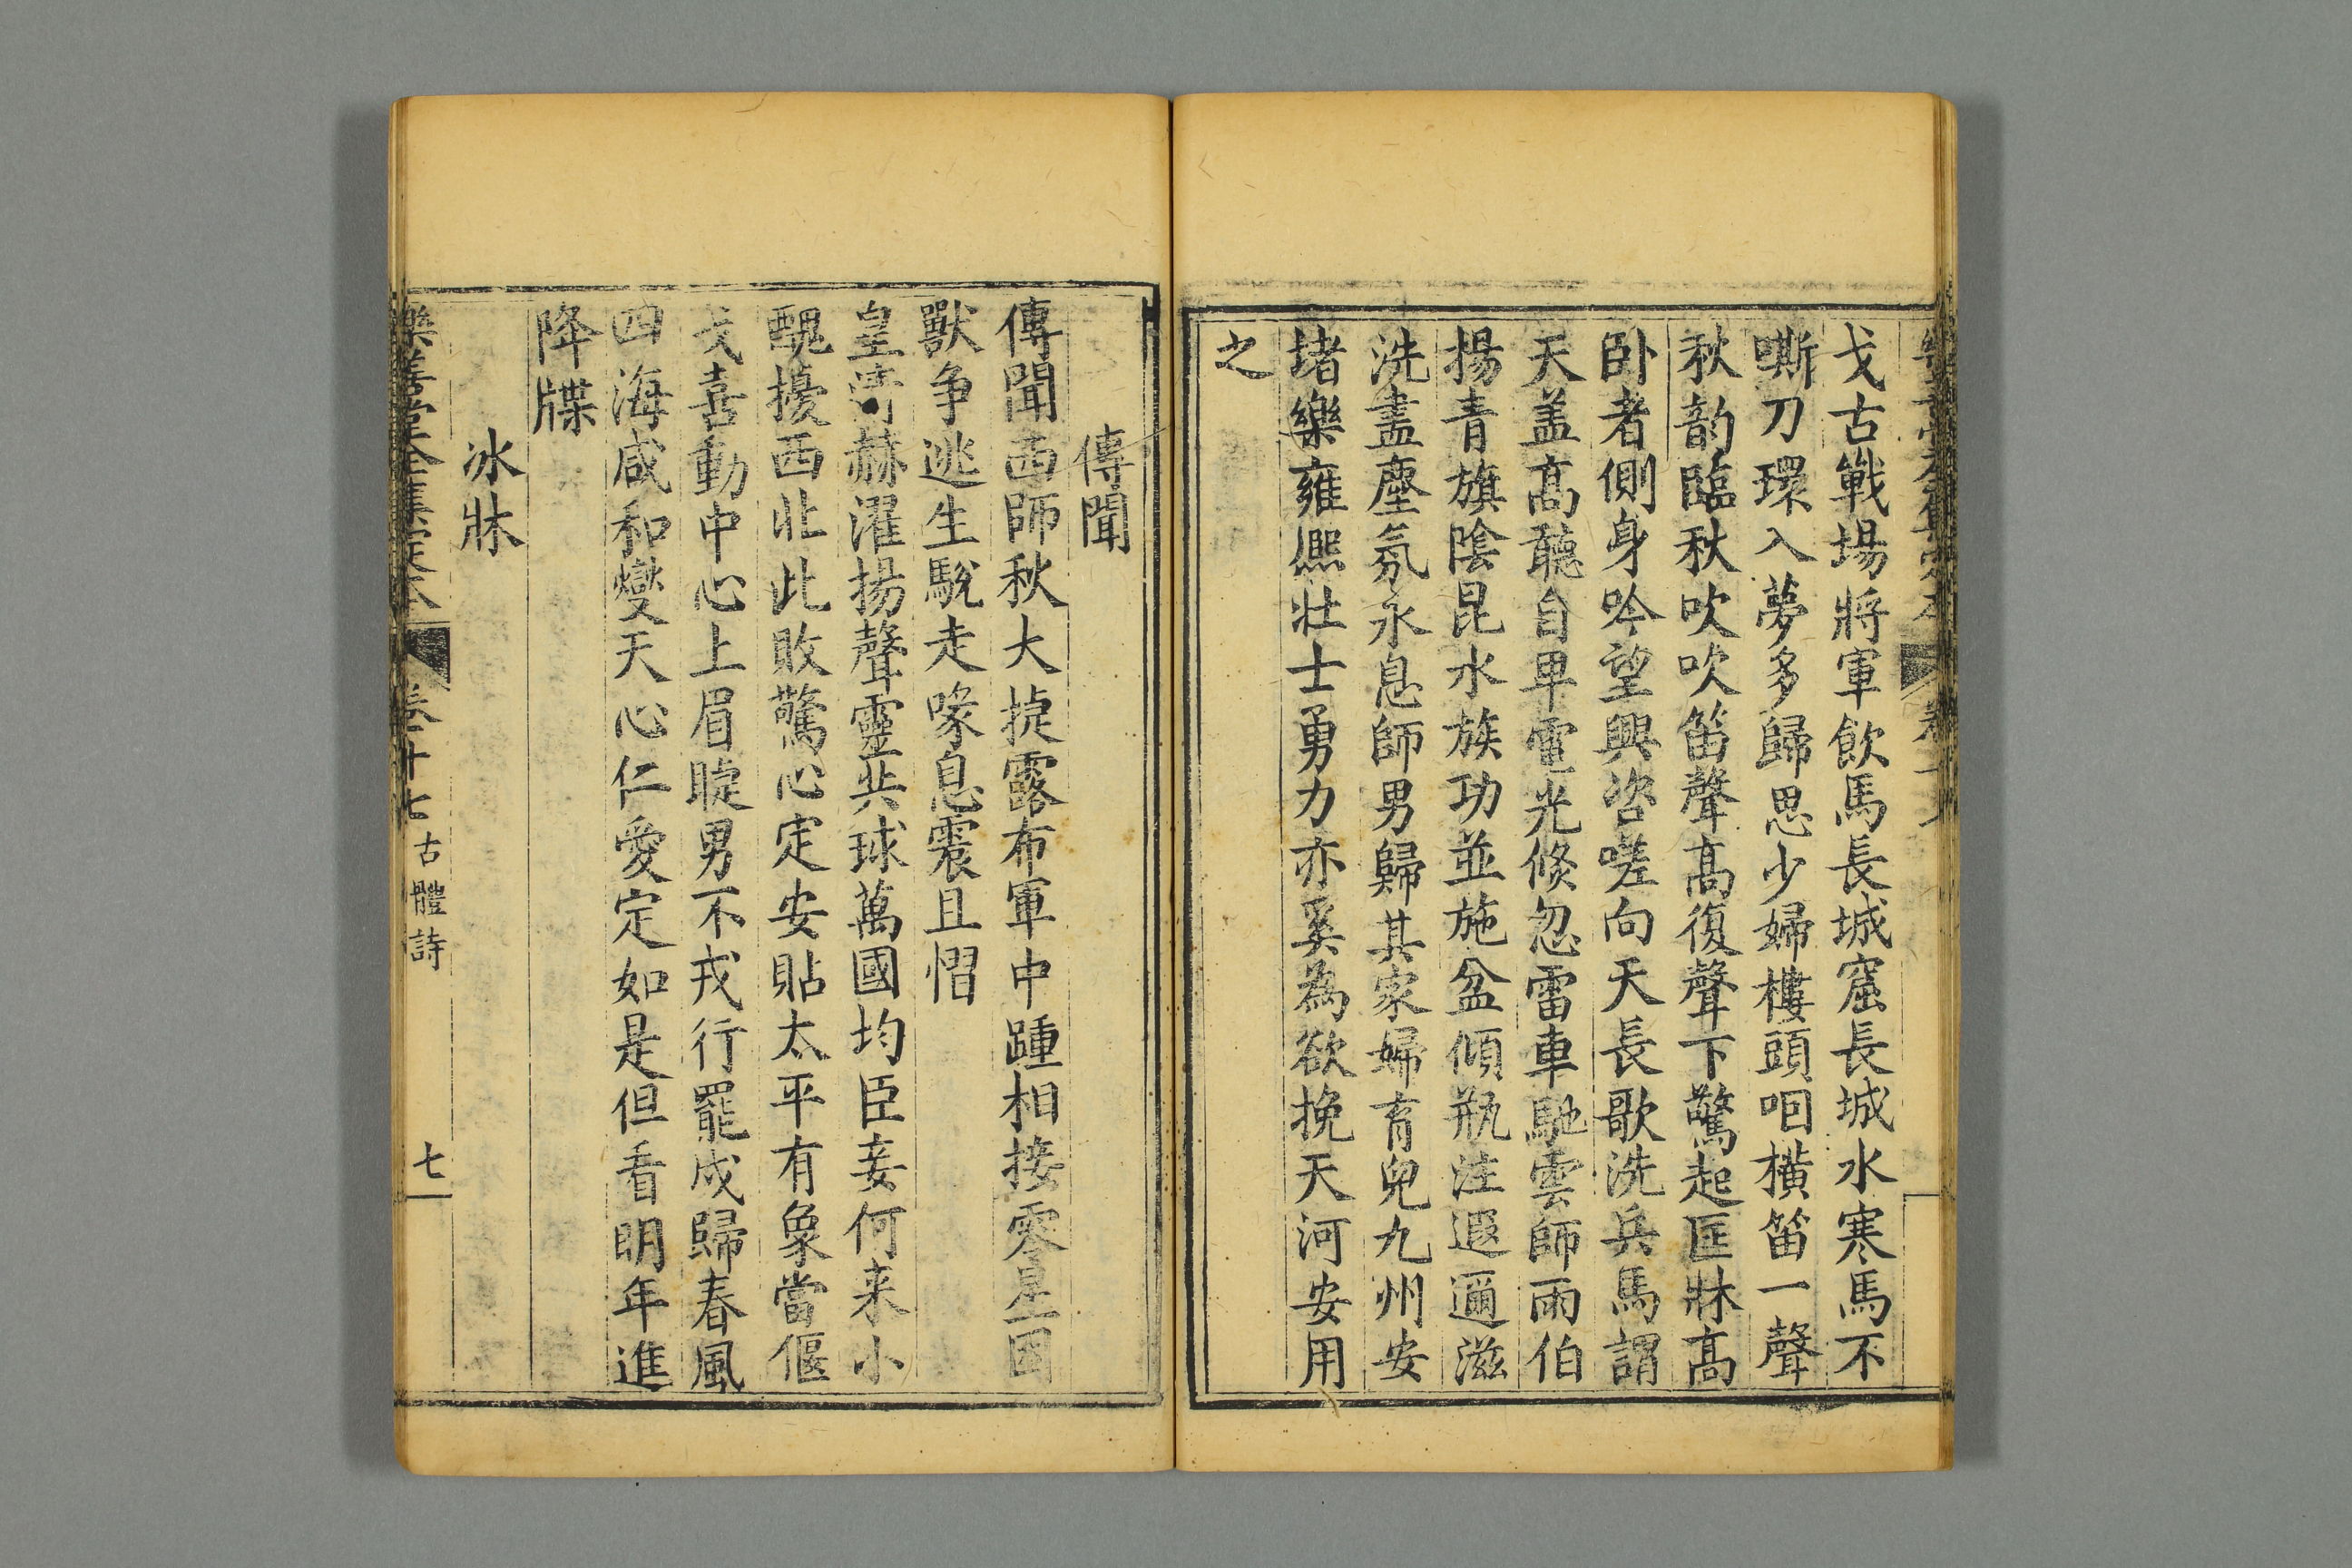 戈古戰場將軍飲馬長城窟長城水寒馬不
嘶刀環入夢多歸思少婦樓頭咽橫笛一聲
秋韵臨秋吹吹笛聲髙復聲下驚起匡牀髙
卧者側身吟望興咨嗟向天長歌洗兵馬謂
天盖髙聽自卑電光倐忽雷車馳雲師雨伯
揚青旗陰昆水族功並施盆傾瓶注遐邇滋
洗盡塵氛永息師男歸其家婦育兒九州安
堵樂雍熈壯士勇力亦奚為欲挽天河安用
之
傳聞
傳聞西師秋大捷露布軍中踵相接零星困
獸争逃生駾走喙息震且慴
皇清赫濯揚聲靈共球萬國均臣妾何来小
醜擾西北此敗驚心定安貼太平有象當偃
戈喜動中心上眉睫男不戎行罷戍歸春風
四海咸和燮天心仁愛定如是但看明年進
降牒
冰牀
樂善堂全集定本 卷十七 古體詩 七